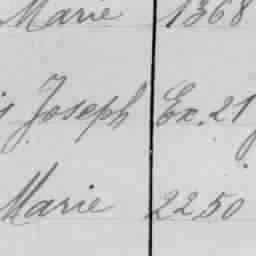 Marie 1368
Joseph Ex. 21
Marie 2250